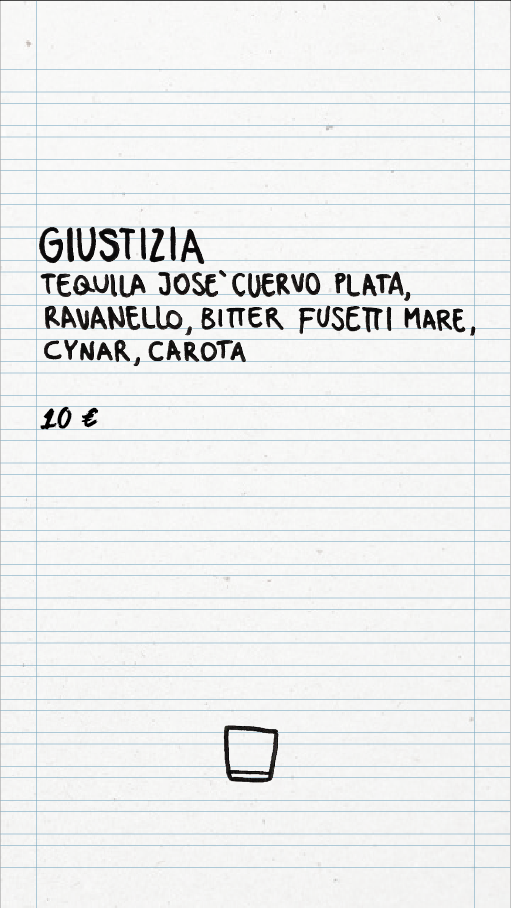 GIUSTIZIA
TEQUILA JOSE` CUERVO PLATA,
RAVANELLO, BITTER FUSETTI MARE,
CYNAR, CAROTA
10 €